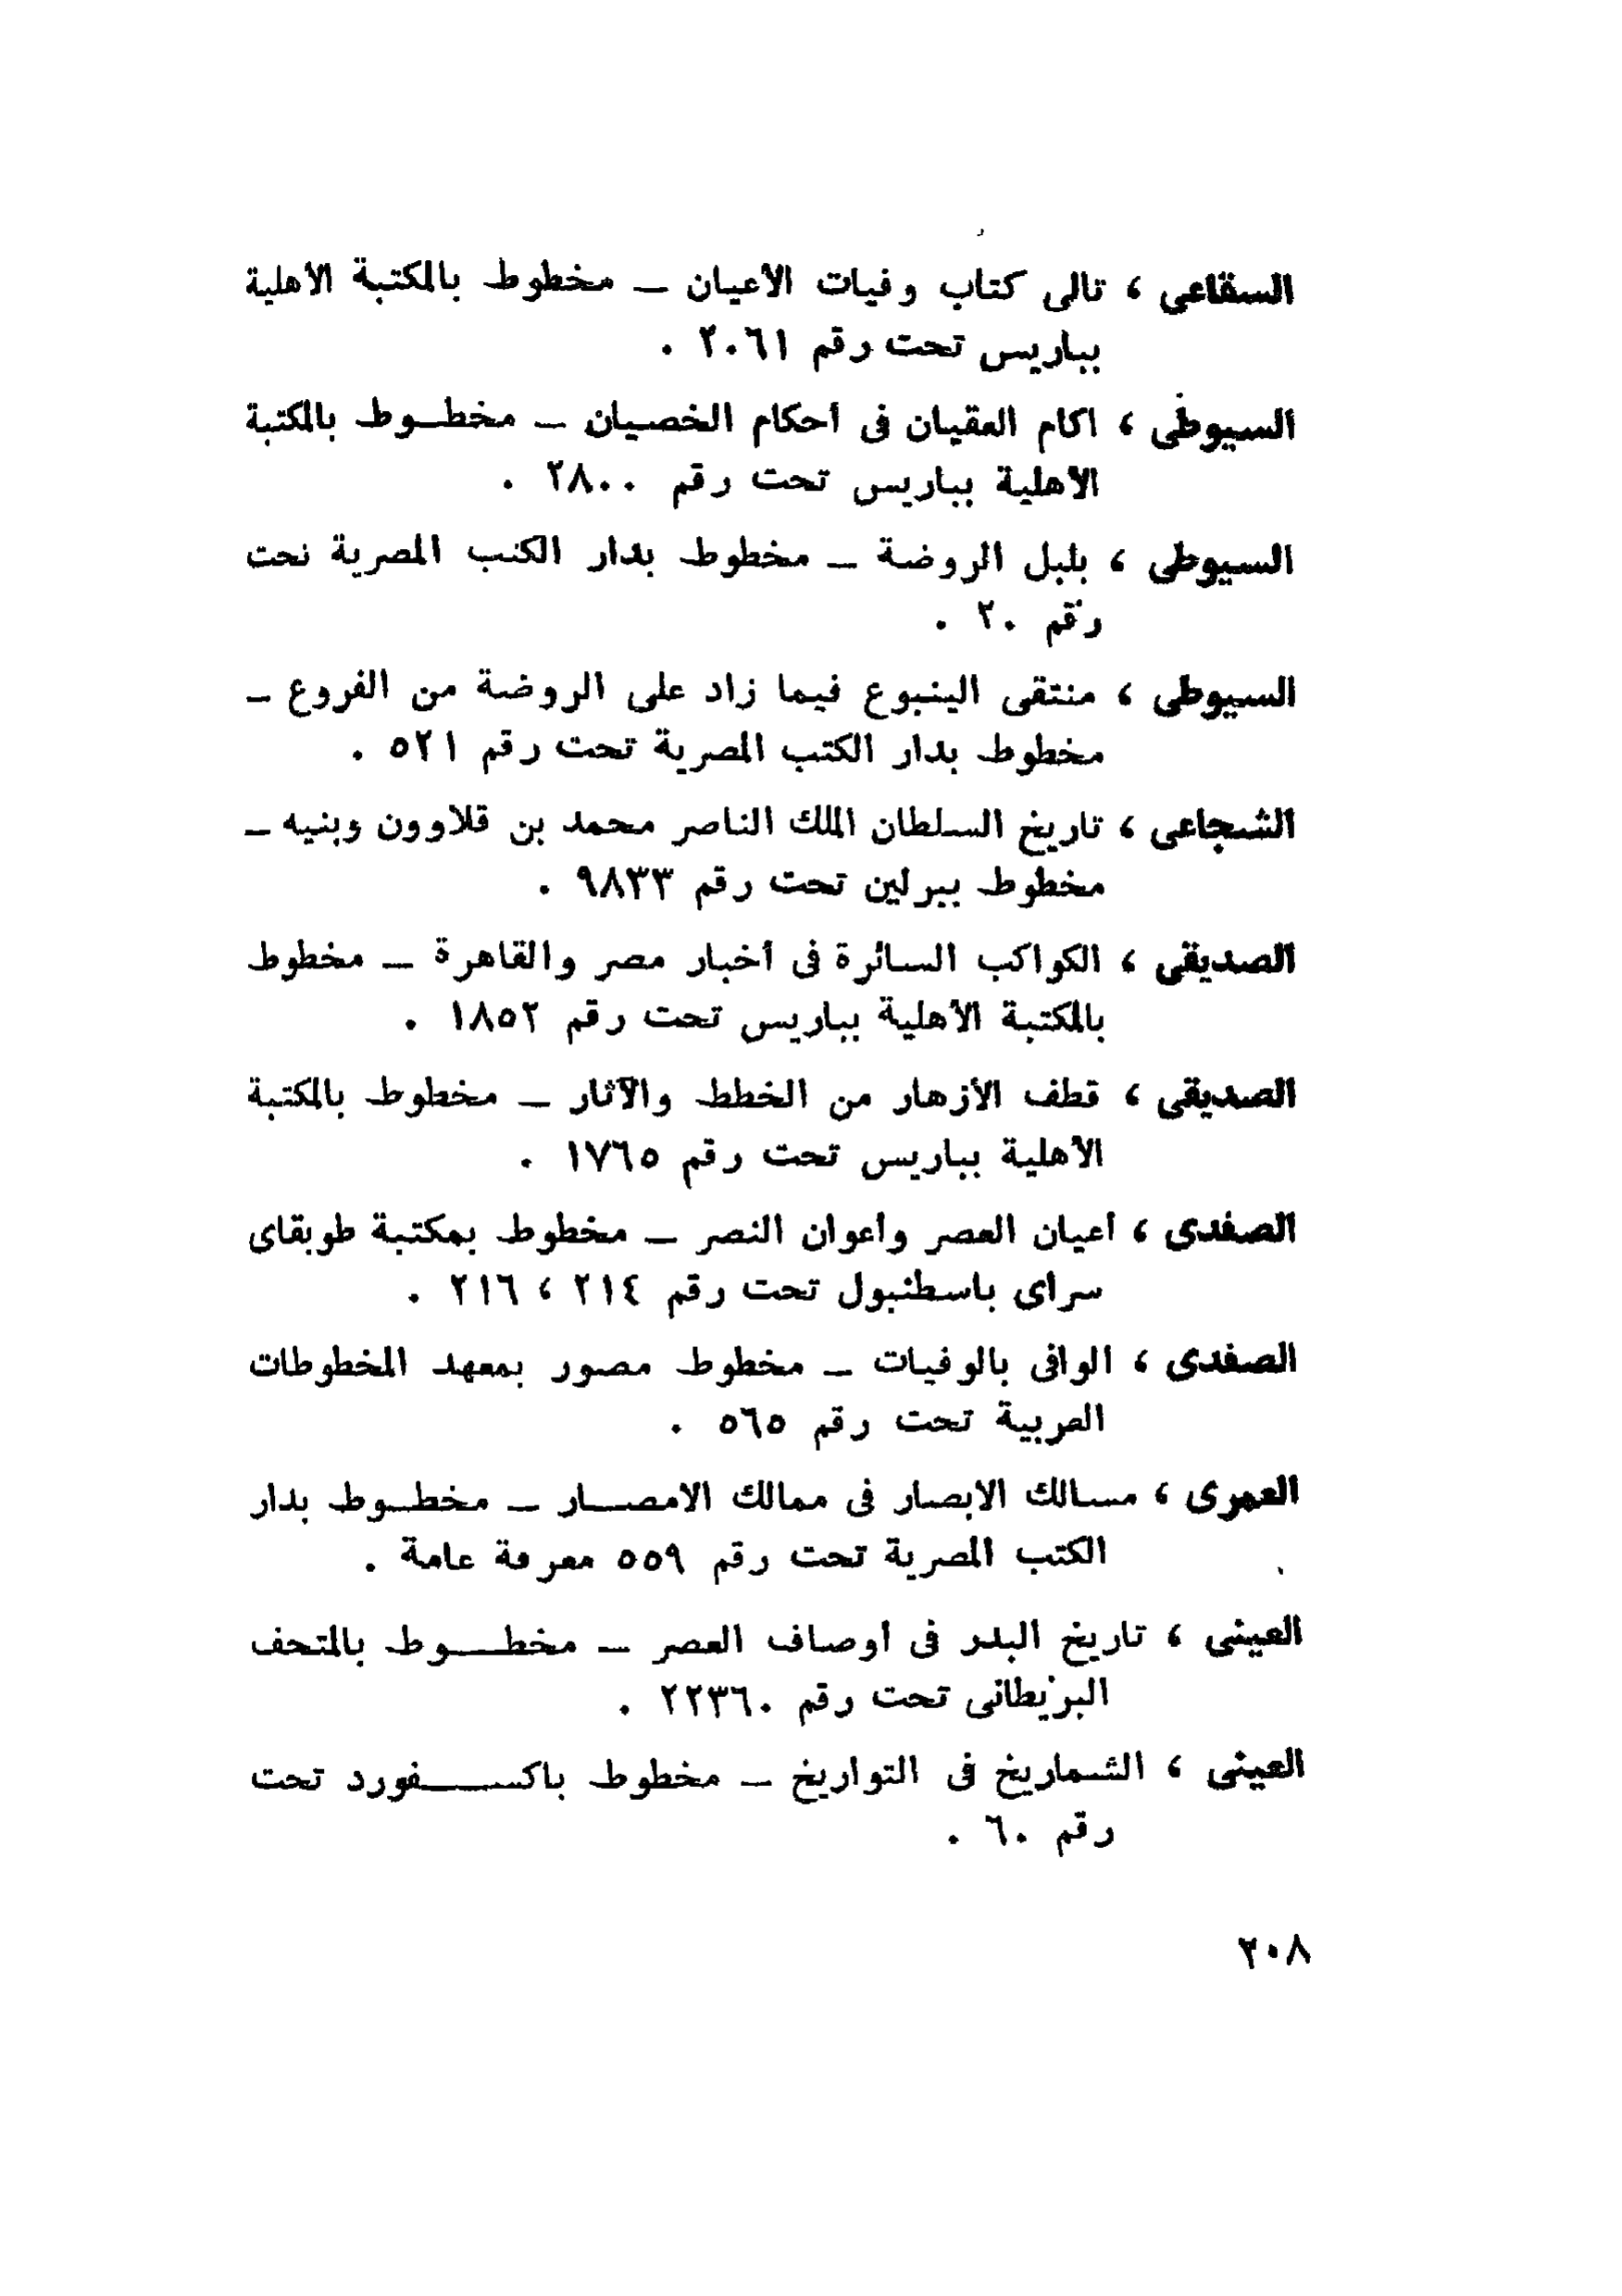 السقاعى ، تالى كتاب وفيات الأعيان – مخطوط بالمكتبة الأهلية
بباريس تحت رقم ٢٠٦١ .
السيوطى ، اكام العقيان فى أحكام الخصيان – مخطوط بالمكتبة
الأهلية بباريس تحت رقم ٢٨٠٠ .
السيوطى ، بلبل الروضة – مخطوط بدار الكتب المصرية تحت
رقم ٢٠ .
السيوطى ، منتقى الينبوع فيما زاد على الروضة من الفروع –
مخطوط بدار الكتب المصرية تحت رقم ٥٢١ .
الشجاعى ، تاريخ السلطان الملك الناصر محمد بن قلاوون وبنيه –
مخطوط ببرلين تحت رقم ٩٨٣٣ .
الصديقى ، الكواكب السائرة فى أخبار مصر والقاهرة – مخطوط
بالمكتبة الأهلية بباريس تحت رقم ١٨٥٢ .
الصديقى ، قطف الأزهار من الخطط والآثار – مخطوط بالمكتبة
الأهلية بباريس تحت رقم ١٧٦٥ .
الصفدى ، أعيان العصر وأعوان النصر – مخطوط بمكتبة طوبقاى
سراى باسطنبول تحت رقم ٢١٤ ، ٢١٦ .
الصفدى ، الوافى بالوفيات – مخطوط مصور بمعهد المخطوطات
العربية تحت رقم ٥٦٥ .
العمرى ، مسالك الابصار فى ممالك الامصار – مخطوط بدار
الكتب المصرية تحت رقم ٥٥٩ معرفة عامة .
العينى ، تاريخ البدر فى أوصاف العصر – مخطوط بالمتحف
البريطانى تحت رقم ٢٢٣٦٠ .
العينى ، الشماريخ فى التواريخ – مخطوط باكسفورد تحت
رقم ٦٠ .
٢٠٨